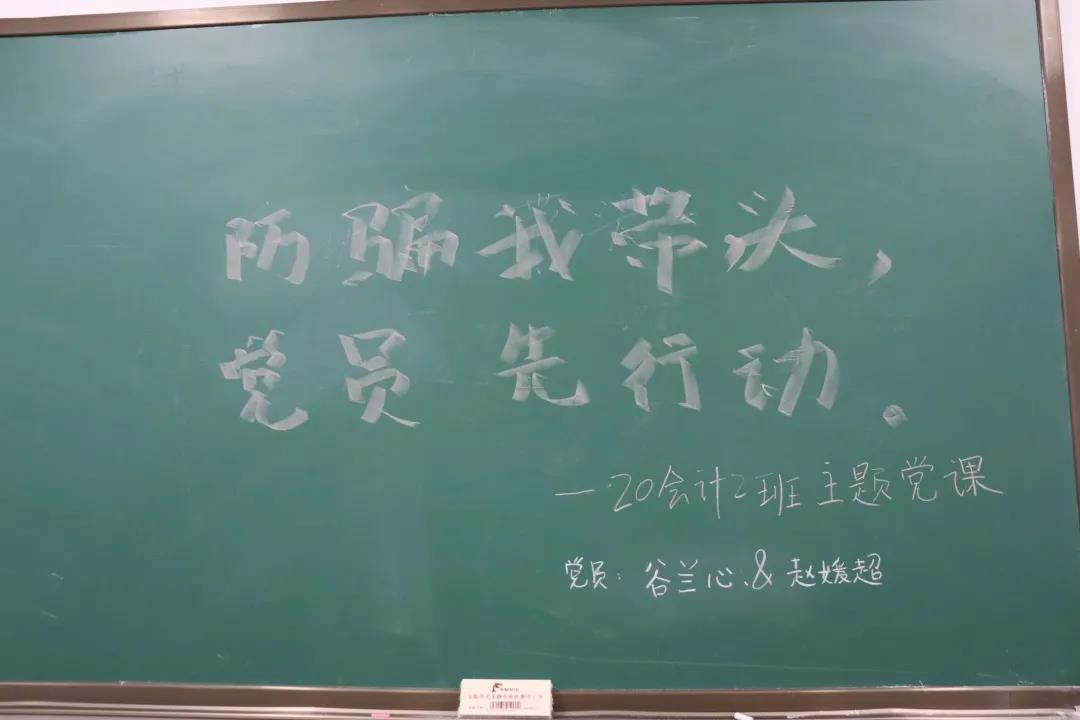 防骗我带头,
党员先行动。
—20会计2班主题党课
党员: 谷兰心、&赵媛超